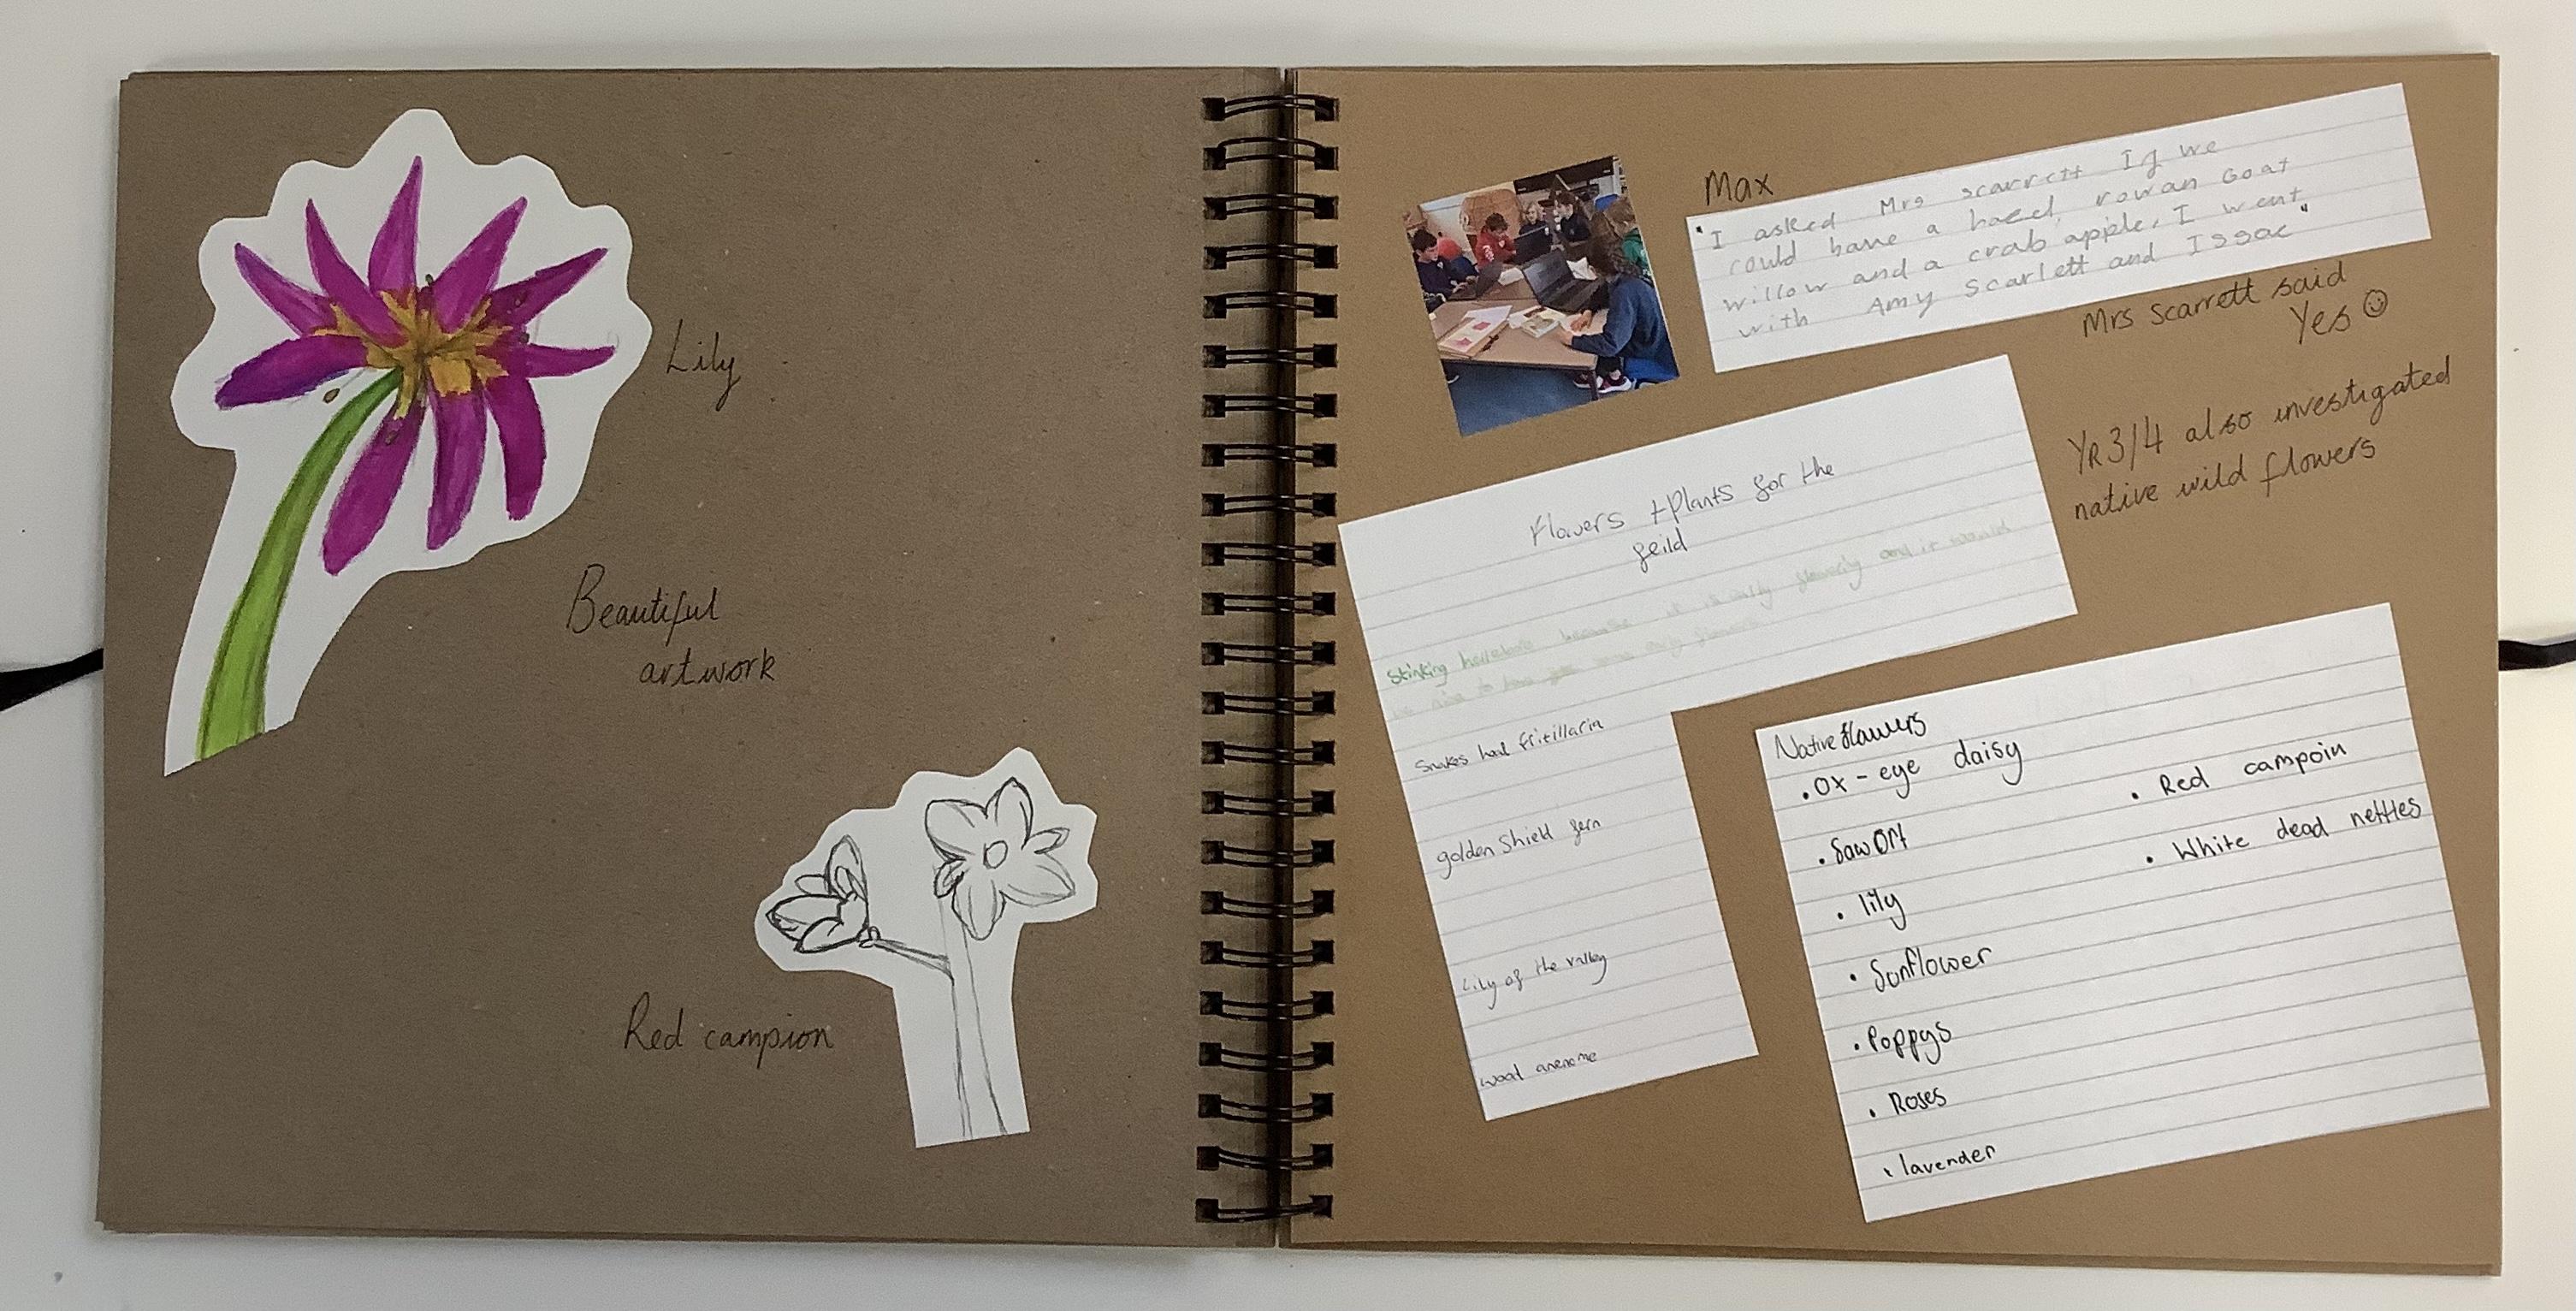 Lily
Beautiful
artwork
Red campion
Max
"I asked Mrs scarrett If we
could have a hazel, rowan Goat
willow and a crab apple, I went
with Amy Scarlett and Issac"
Mrs Scarrett said
Yes
Yr 3/4 also investigated
native wild flowers
Flowers + Plants for the
feild
Stinking hellebore because it is early flowering and it would
be nice to have some early flowers
Snakes head fritillaria
golden Shield fern
Lily of the valley
wood anenome
Native flowers
• Ox-eye daisy
• Sawort
• lily
• Sunflower
• Poppys
• Roses
• lavender
• Red campoin
• White dead nettles